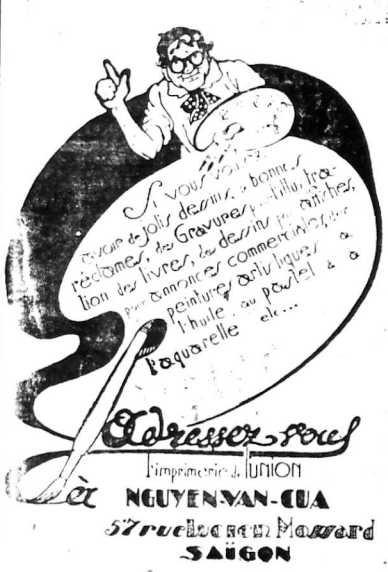 Si vous voulez
avoir de jolis dessins, de bonnes
réclames, des Gravures pour l'illustra-
tion des livres, des dessins pour affiches,
pour annonces commerciales, des
peintures artistiques à
l'huile, au pastel à
l'aquarelle etc...
Adressez-vous
l'imprimerie de l'UNION
à NGUYEN-VAN-CUA
57 rue Lucien Mossard
SAÏGON